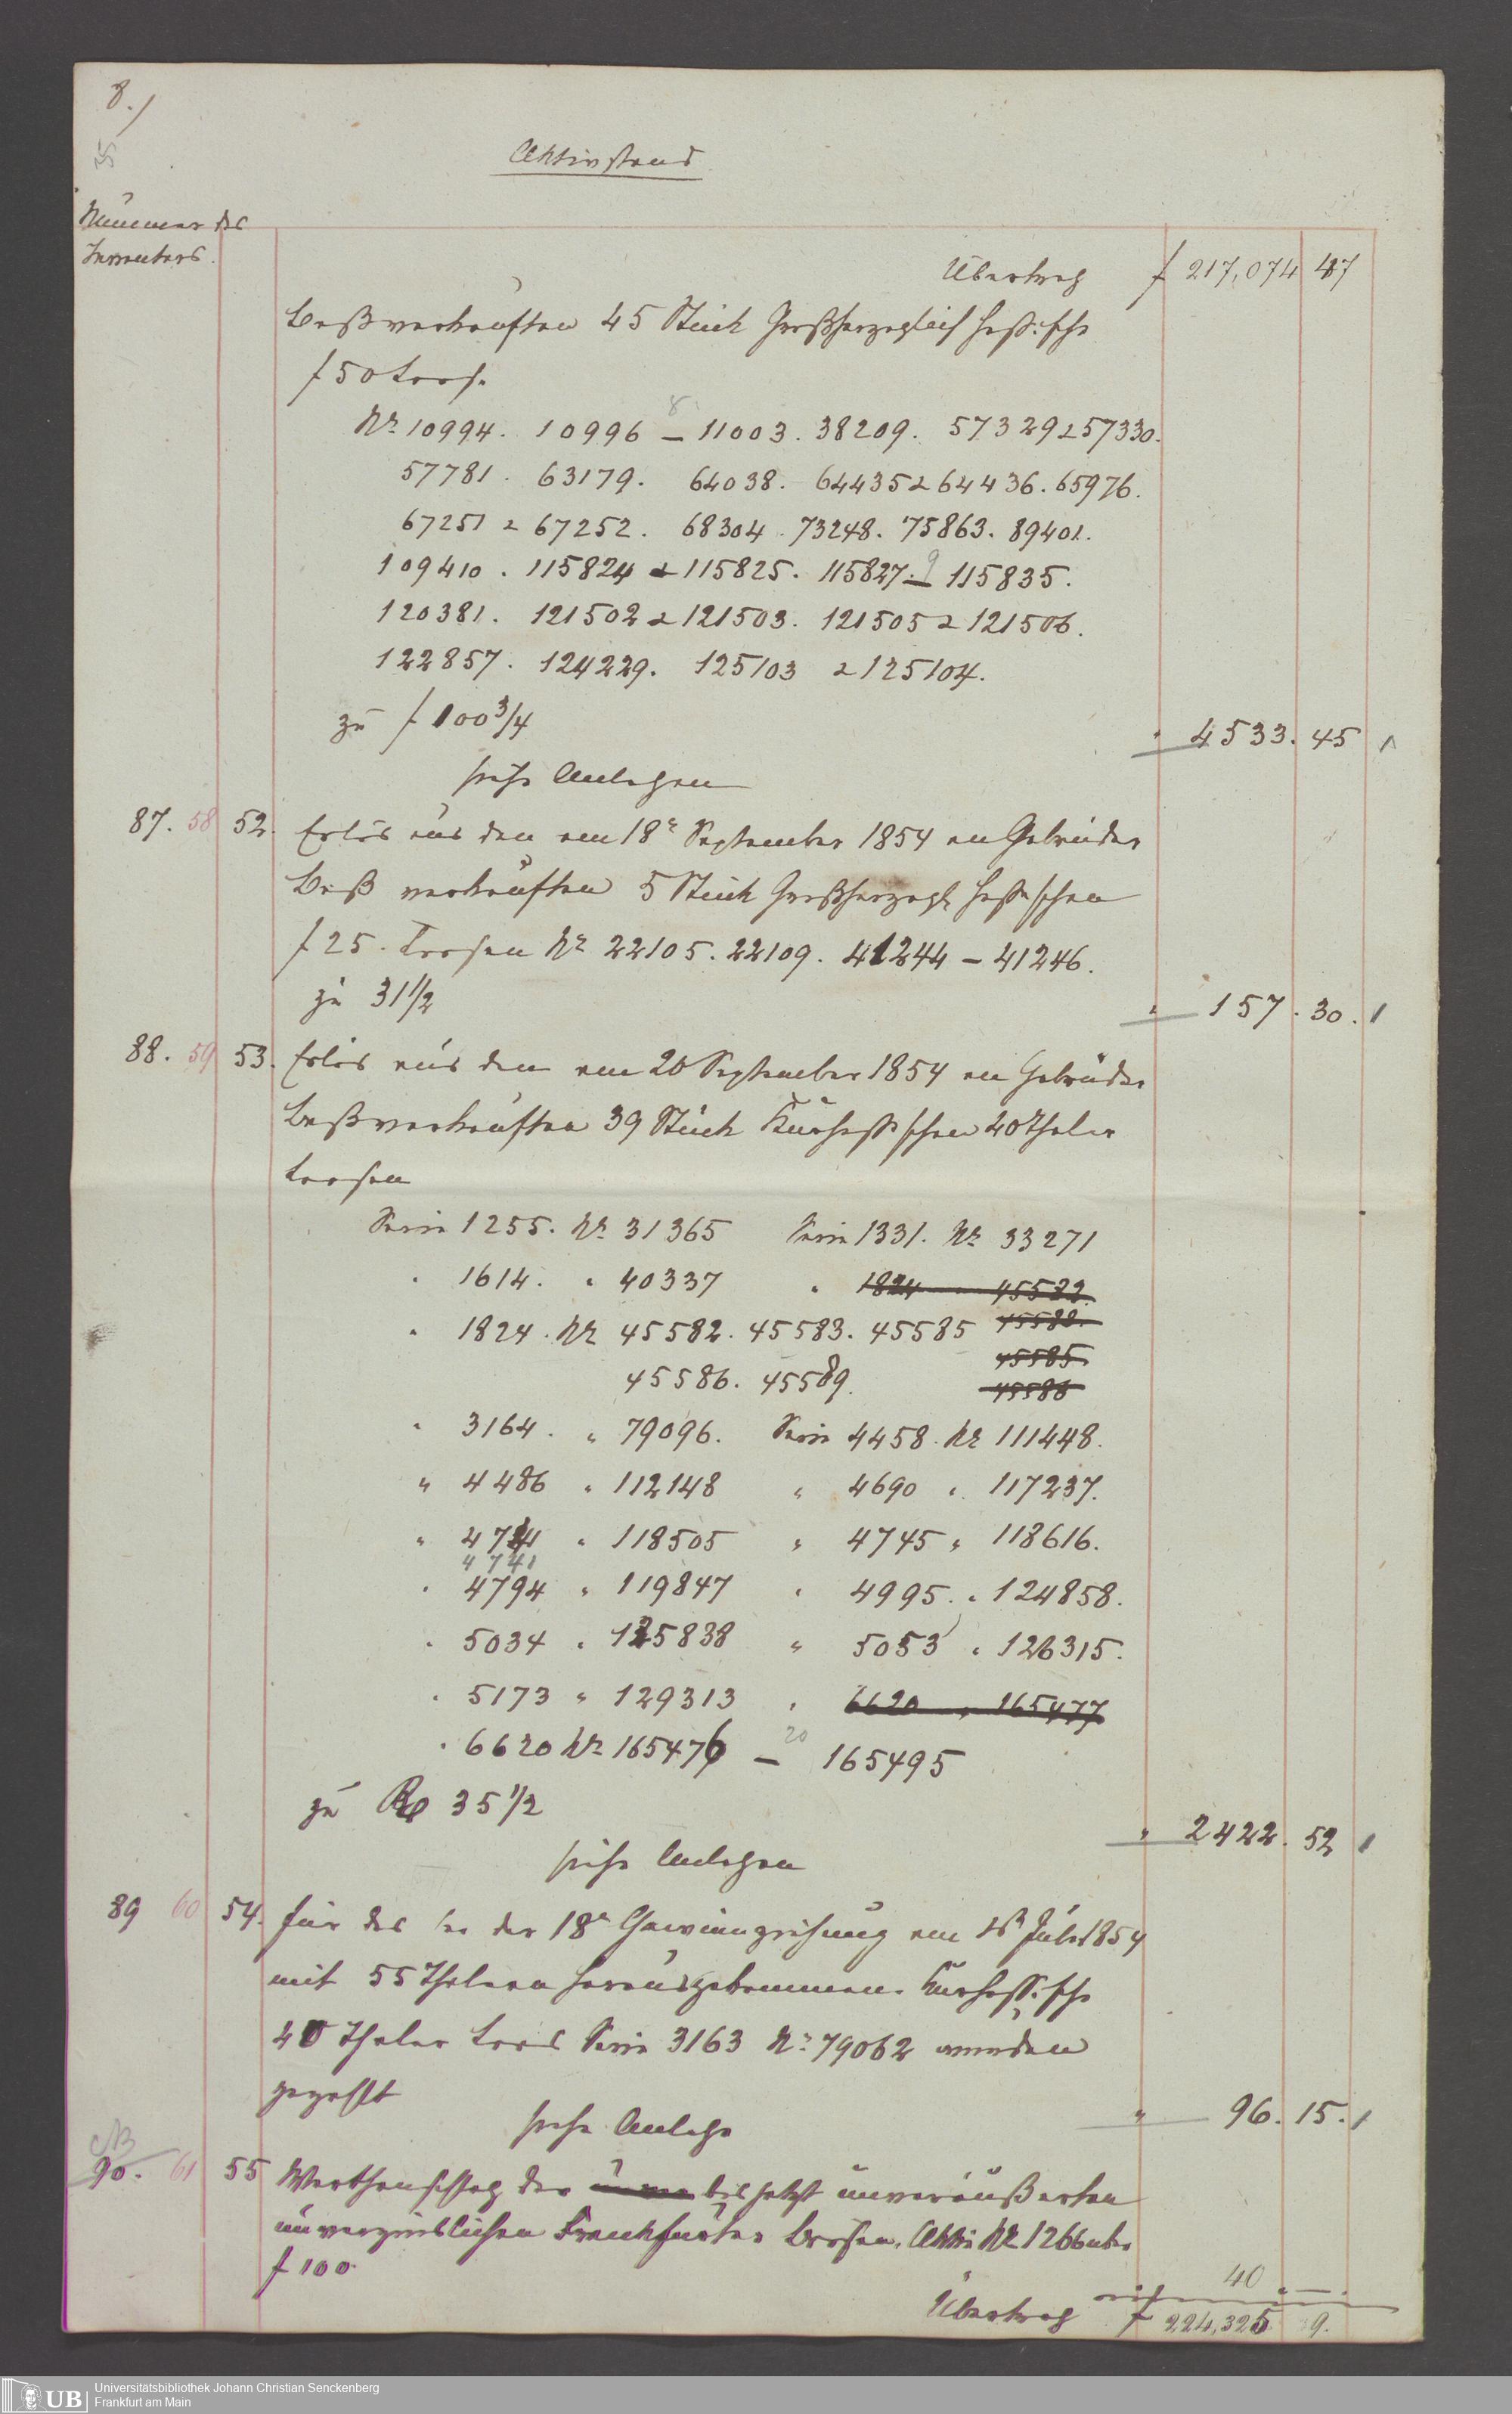 8./
Aktivstand
Nummer des
Inventars.
Übertrag f 217,074 47
Baß verkauften 45 Stück Großherzoglich Hessische
f 50 Loose
Nr 10994. 10996 – 11003. 38209. 57329 & 57330.
8
57781. 63179. 64038. 64435 & 64436. 65976.
67251 & 67252. 68304. 73248. 75863. 89401.
109410. 115824 & 115825. 115827. – 115835.
9
120381. 121502 & 121503. 121505 & 121506.
122857. 124229. 125103 & 125104.
zu f 100 3/4 " 4533. 45
siehe Anlagen
87. 58 52. Erlös aus den am 18r September 1854 an Gebrüder
Baß verkauften 5 Stück Großherzogl Hessischen
f 25. Loosen Nr 22105. 22109. 41244 – 41246.
zu 31 1/2 " 157. 30.
88. 59 53. Erlös aus den am 20 September 1854 an Gebrüder
Baß verkauften 39 Stück Kurhessischen 40 Thaler
Loosen
Serie 1255. Nr 31365 Serie 1331. Nr 33271
" 1614. " 40337 " 1824 " 45582.
" 1824. Nr 45582. 45583. 45585 45583.
45585.
45586. 45589. 45586
" 3164. " 79096. Serie 4458. Nr 111448.
" 4486 " 112148 " 4690 " 117237.
" 4741 " 118505 " 4745 " 118616.
4741
" 4794 " 119847 " 4995. " 124858.
" 5034 " 125838 " 5053 " 126315.
" 5173 " 129313 " 6620 " 165477
" 6620 Nr 165476 – 165495
20
zu Rp 35 1/2 " 2422. 52
siehe Anlagen
89 60 54. für das bei der 18n Gewinnziehung am Juli 1854
mit 55 Thalern herausgekommene Kurhessische
40 Thaler Loos Serie 3163 Nr 79062 wurden
gezahlt " 96. 15.
siehe Anlage
NB
90. 61 55 Werthanschlag der bis jetzt unveräußerten
unverzinslichen Frankfurter Aktie Nr 1266 über
f 100. 40. –.
Übertrag f 224,325 9.
UB
Universitätsbibliothek Johann Christian Senckenberg
Frankfurt am Main